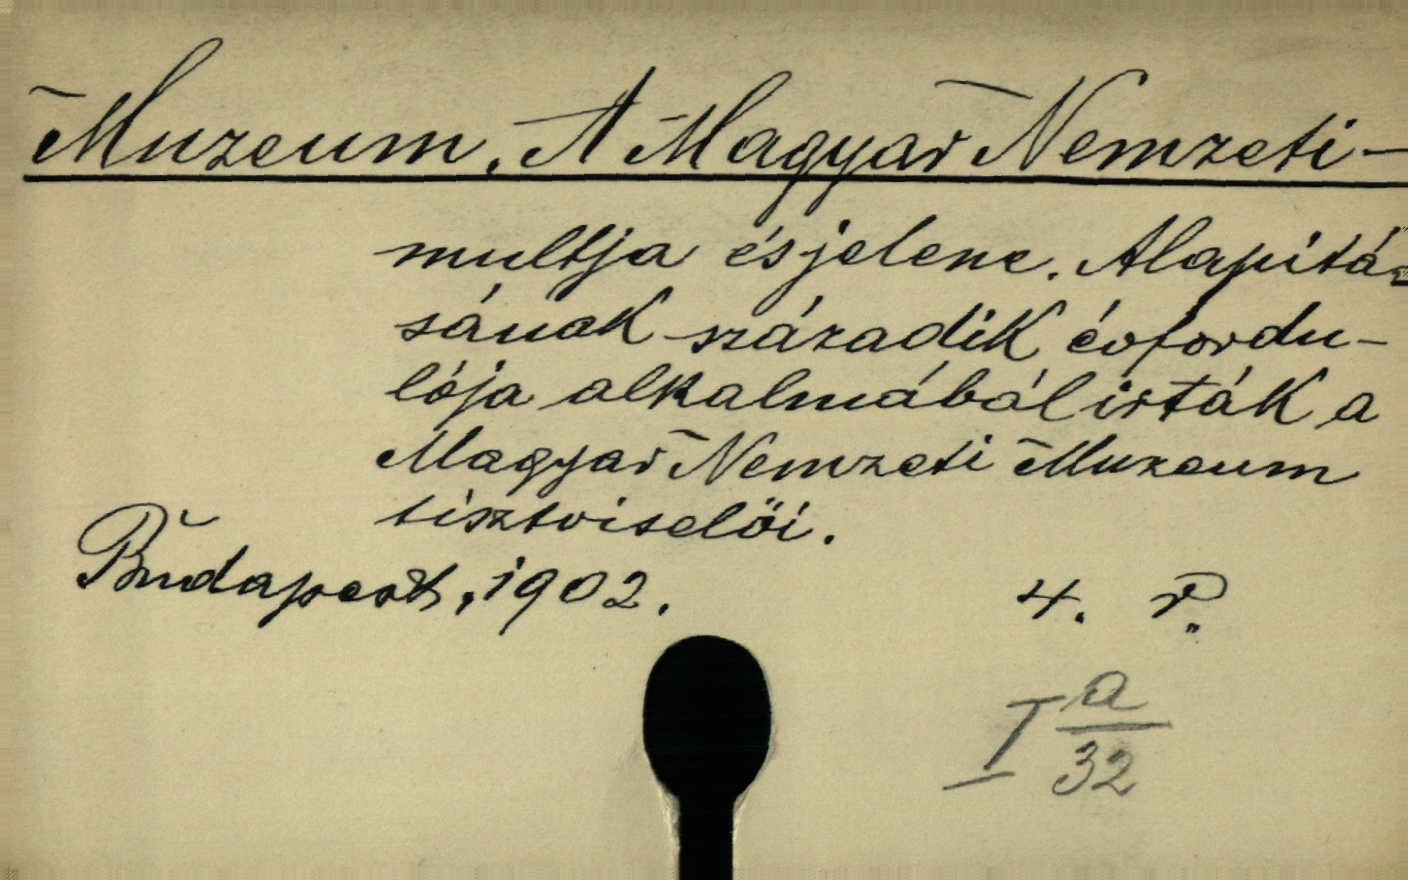 Muzeum, A Magyar Nemzeti –
multja és jelene. Alapitá-
sának századik évfordu-
lója alkalmából irták a
Magyar Nemzeti Muzeum
tisztviselői.
Budapest, 1902. 4. r.
I a/32